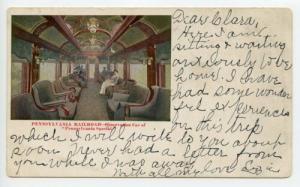 Dear Clara,
Here I am
sitting & waiting
anxiously to be
home. I have
had some wonder-
ful experiences
on this trip
PENNSYLVANIA RAILROAD—Observation Car of
"Pennsylvania Special"
which I will write to you about
soon. Never had a letter from
you while I was away
With all my love